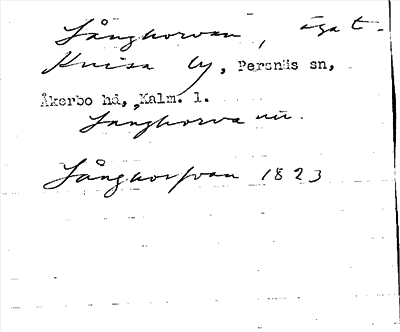 Långhorvan, äga t.
Knisa by, Persnäs sn,
Åkerbo hd, Kalm. l.
Långhorva nu.
Långhorfvan 1823